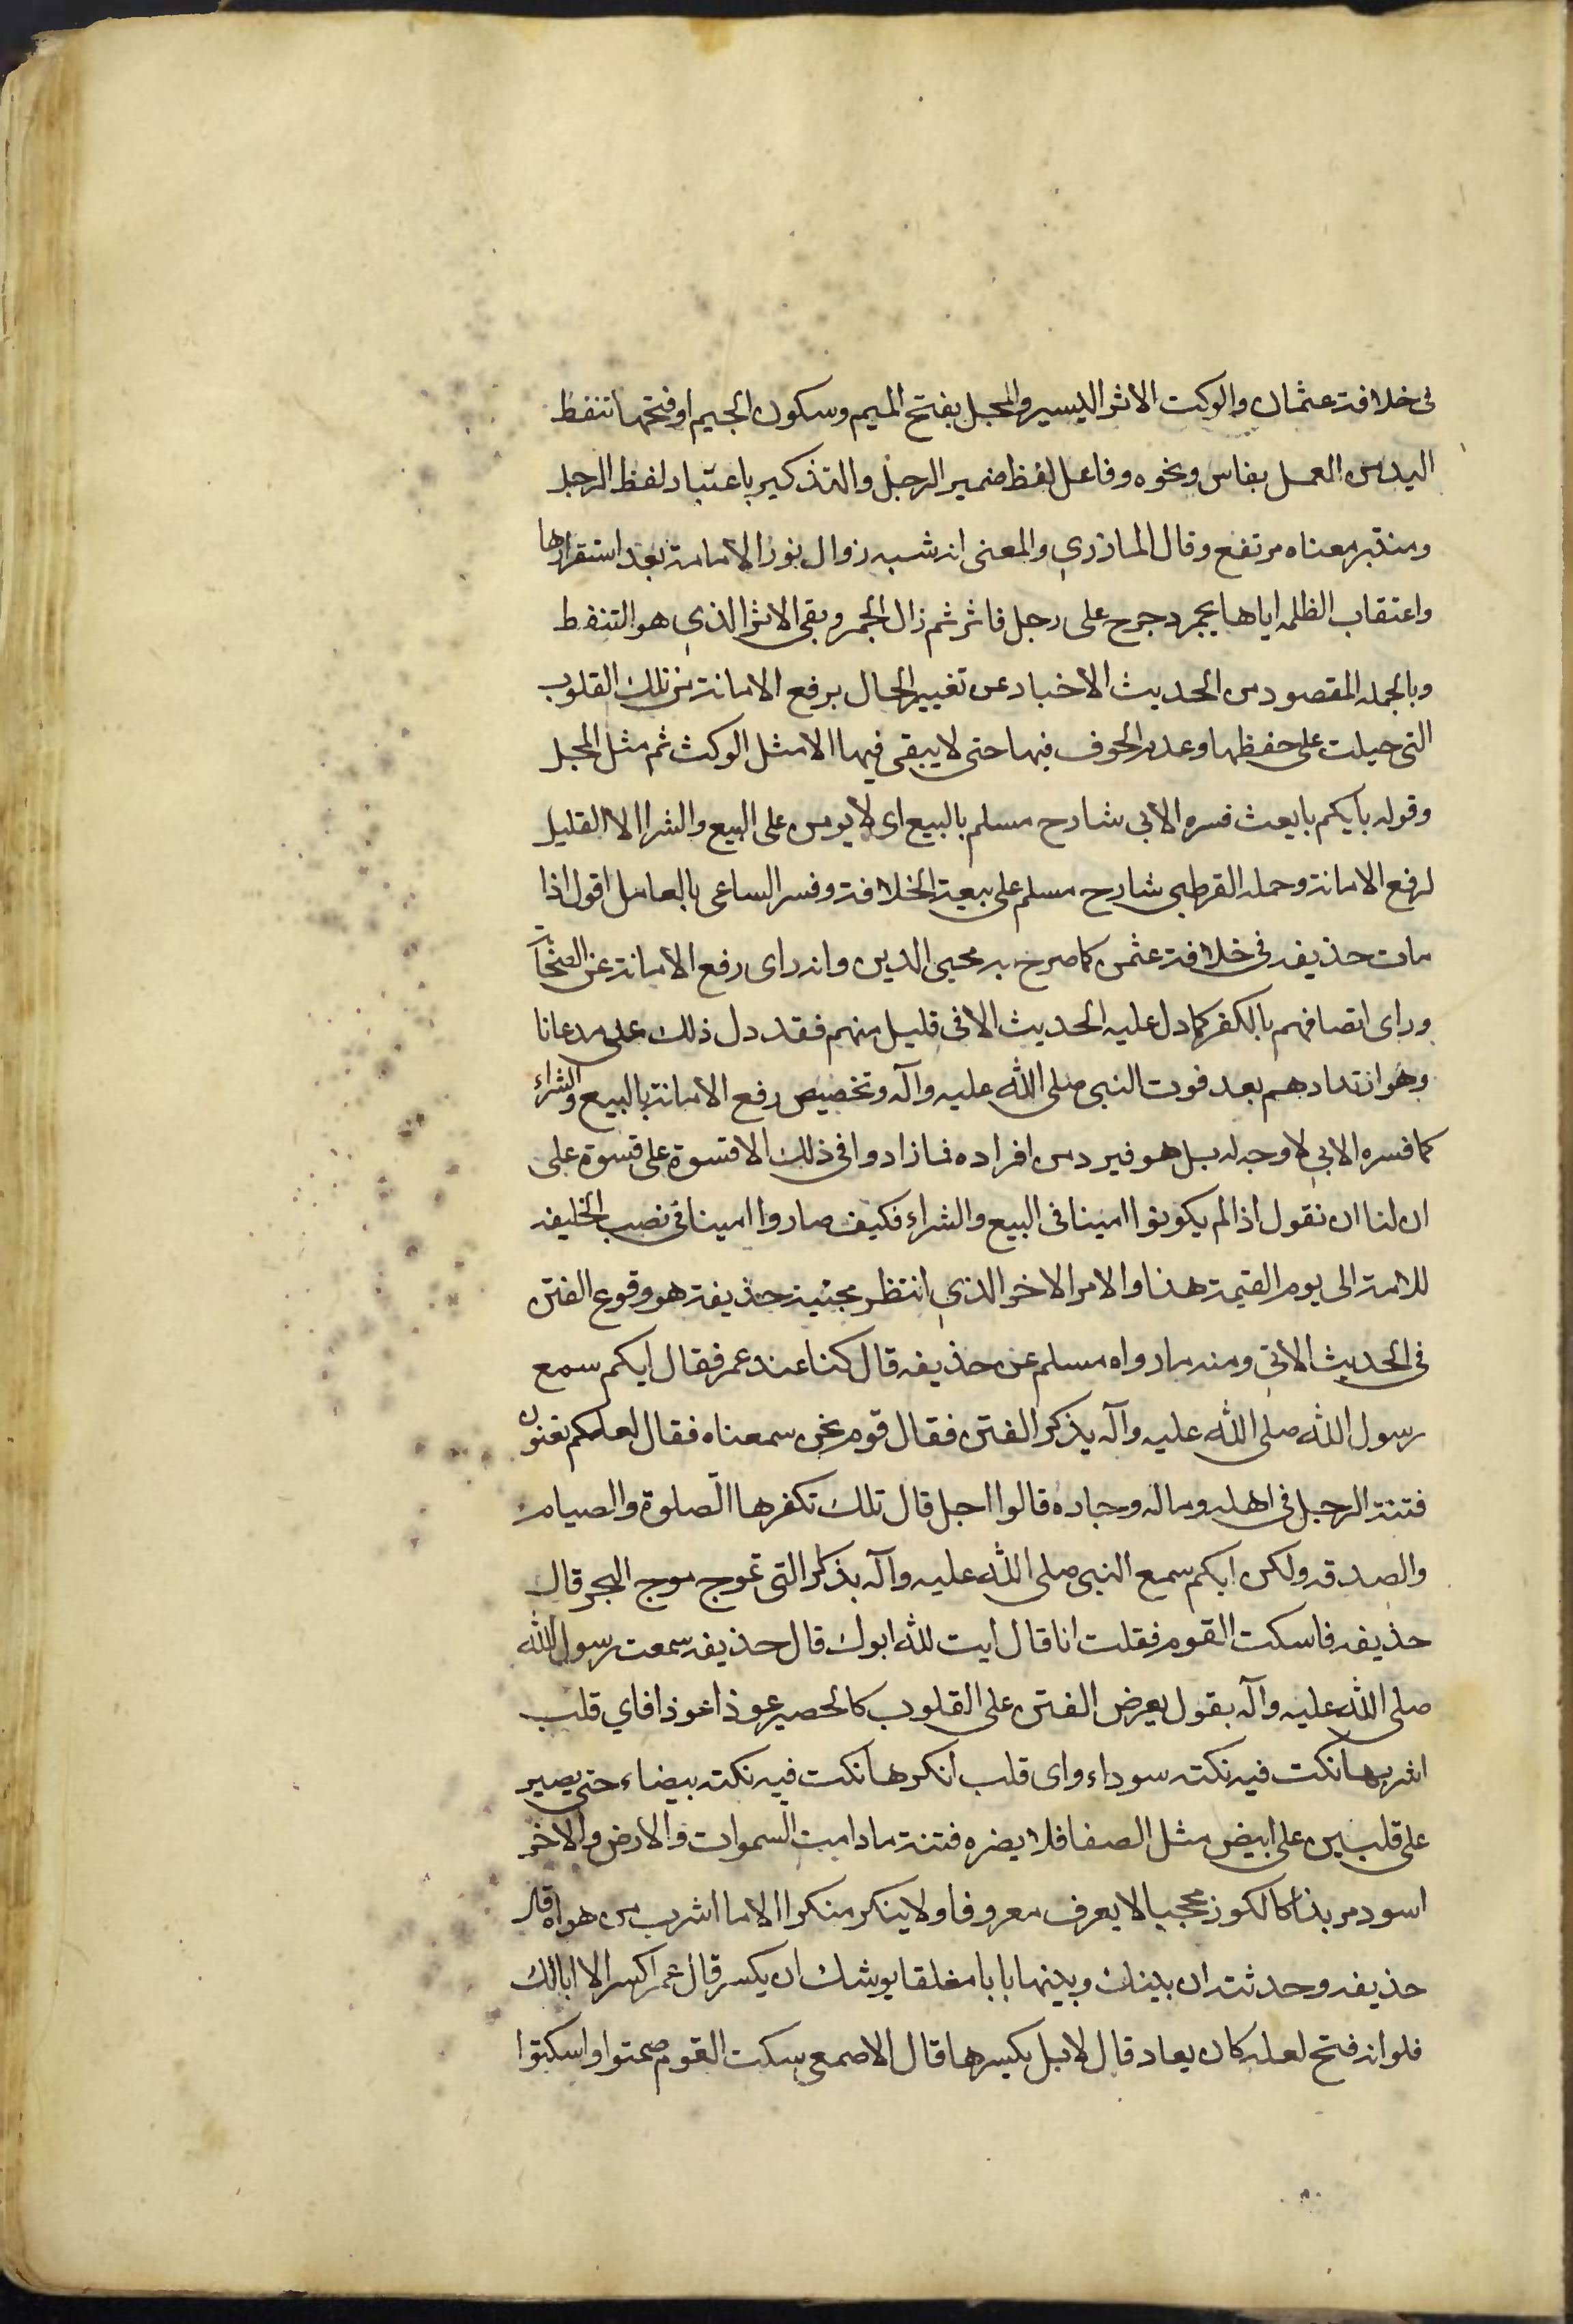 فى خلافة عثمان والوكت الاثر اليسير والمجل بفتح الميم وسكون الجيم او فتحها تنفظ
اليد من العمل بفاس ونحوه وفاعل لفظ ضمير الرجل والتذكير باعتبار لفظ الرجل
ومنتبر معناه مرتفع وقال المازري والمعنى انه شبه زوال نور الامامة بعد استقرارها
واعتقاب الظلمه اياها بجمر دحرج على رجل فاثر ثم زال الجمر وبقى الاثر الذي هو التنفط
وبالجمله المقصود من الحديث الاخبار عن تغيير الحال برفع الامانة من تلك القلوب
التى جبلت على حفظها وعدم الخوف فيها حتى لا يبقى فيها الا مثل الوكث ثم مثل المجل
وقوله بايكم بايعث فسره الابى شارح مسلم بالبيع اى لا يومن على البيع والشرا الا القليل
لرفع الامانة وحمله القرطبى شارح مسلم على بيعة الخلافة وفسر الساعى بالعامل اقول اذا
مات حذيفه فى خلافة عثمن كما صرح به محيى الدين وانه راى رفع الامانة عن الصحابة
وراى اتصافهم بالكفر كما دل عليه الحديث الا فى قليل منهم فقد دل ذلك على مدعانا
وهو ارتدادهم بعد فوت النبى صلى الله عليه وآله وتخصيص رفع الامانة بالبيع والشراء
كما فسره الابي لا وجه له بل هو فيرد من افراده فما زادوا فى ذلك الا قسوة على قسوة على
ان لنا ان نقول اذا لم يكونوا امينا فى البيع والشراء فكيف صاروا امينا فى نصب الخليفه
للامة الى يوم القيمة هذا والامر الاخر الذي انتظر مجئية حذيفة هو وقوع الفتن
فى الحديث الاتي ومنه ما رواه مسلم عن حذيفه قال كنا عند عمر فقال ايكم سمع
رسول الله صلى الله عليه وآله يذكر الفتن فقال قوم نحن سمعناه فقال لعلكم تعنون
فتنة الرجل فى اهله وماله وجاره قالوا اجل قال تلك تكفرها الصلوة والصيام
والصدقه ولكن ايكم سمع النبى صلى الله عليه وآله يذكر التى تموج موج البحر قال
حذيفه فاسكت القوم فقلت انا قال ايت لله ابوك قال حذيفه سمعت رسول الله
صلى الله عليه وآله يقول يعرض الفتن على القلوب كالحصير عوذا عوذا فاي قلب
اشربها نكت فيه نكته سوداء واى قلب انكرها نكت فيه نكته بيضاء حتى يصير
على قلبين على ابيض مثل الصفا فلا يضره فتنة ما دامت السموات والارض والاخر
اسود مربذا كالكوز مجحبا لا يعرف معروفا ولا ينكر منكرا الا ما اشرب من هواه قال
حذيفه وحدثته ان بينك وبينها بابا مغلقا يوشك ان يكسر قال عمر اكسر الا ابالك
فلو انه فتح لعله كان يعاد قال لا بل يكسرها قال الاصمعى سكت القوم صمتوا واسكتوا